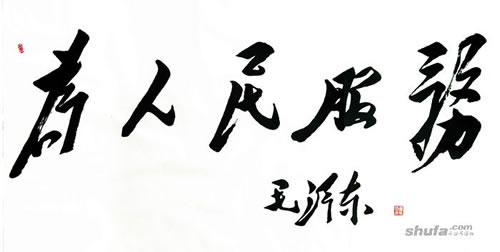 为人民服務
毛泽东
shufa.com